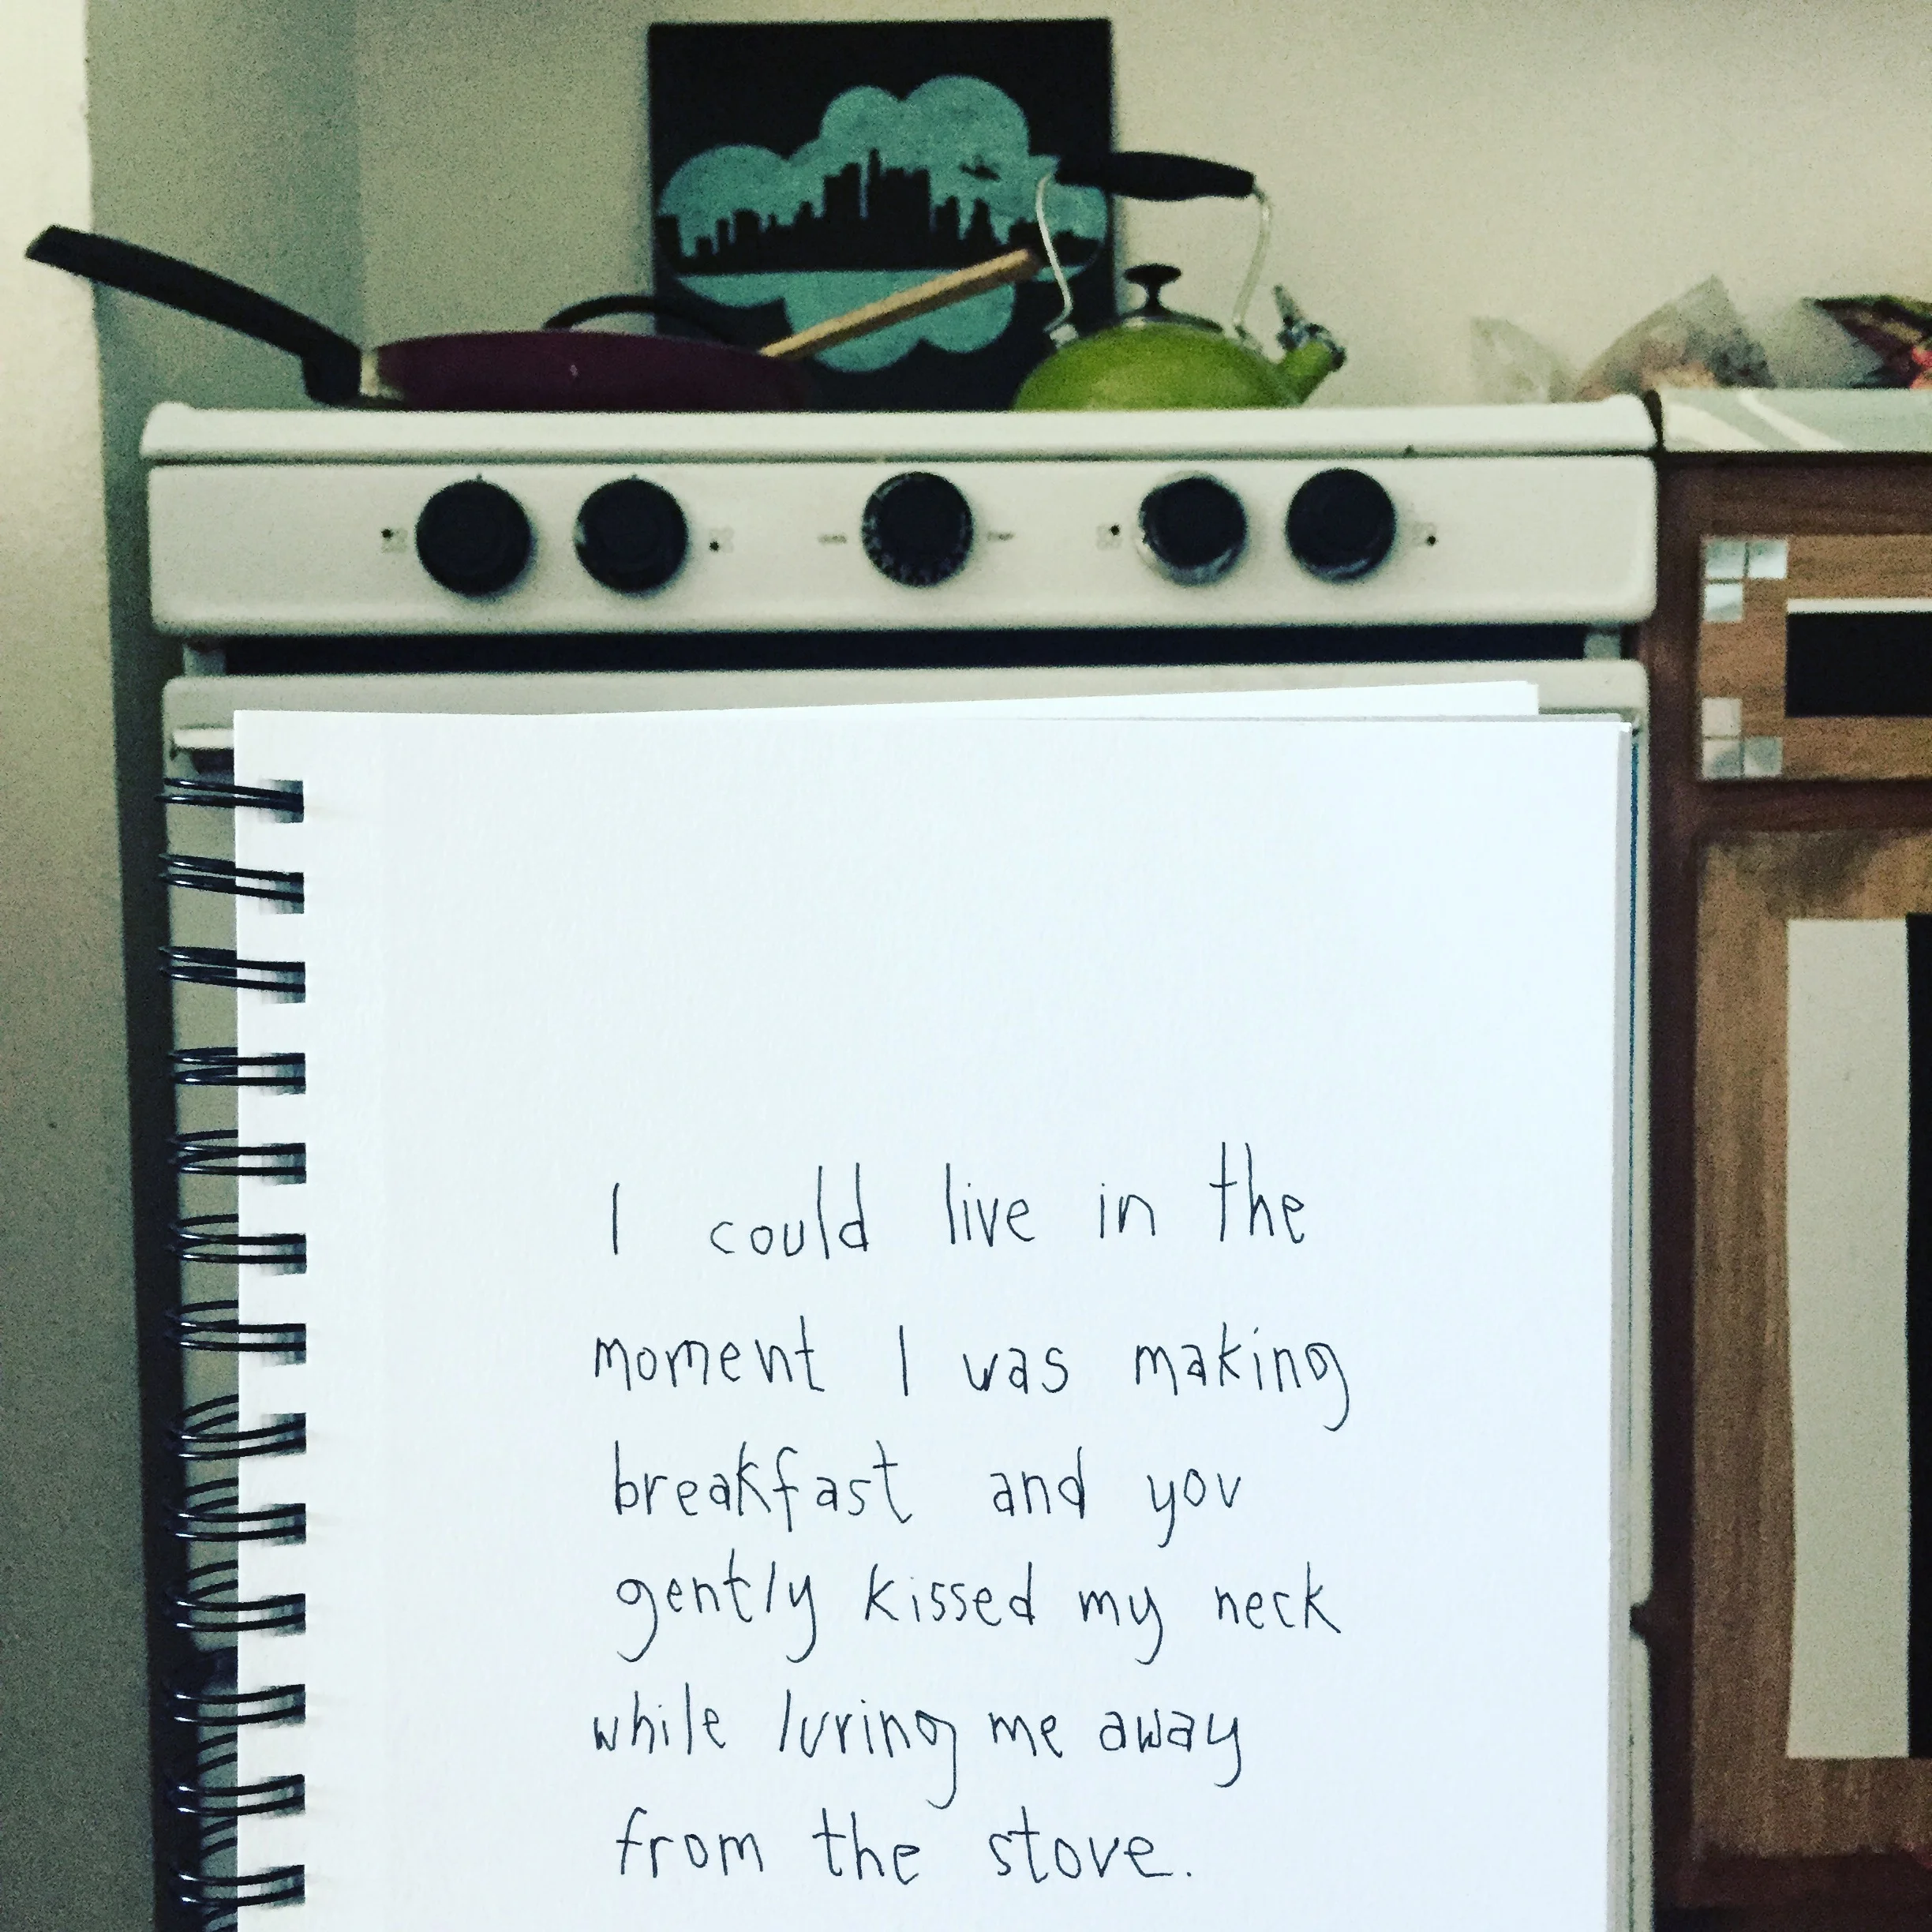 I could live in the
moment I was making
breakfast and you
gently kissed my neck
while luring me away
from the stove.